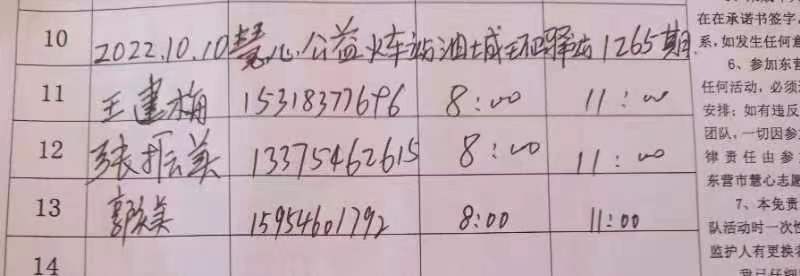 10 2022.10.10慧心公益火车站油城环卫驿站1265期
11 王建梅 15318377696 8:00 11:00
12 张振美 13375462615 8:00 11:00
13 郭美 15954601792 8:00 11:00
14
在在承诺书签字
系,如发生任何意
6、参加东营
任何活动,必须
安排;如有违反
团队,一切因参
律责任由参
东营市慧心志愿
7、本免责
队活动时一次性
监护人有更换
我已仔细